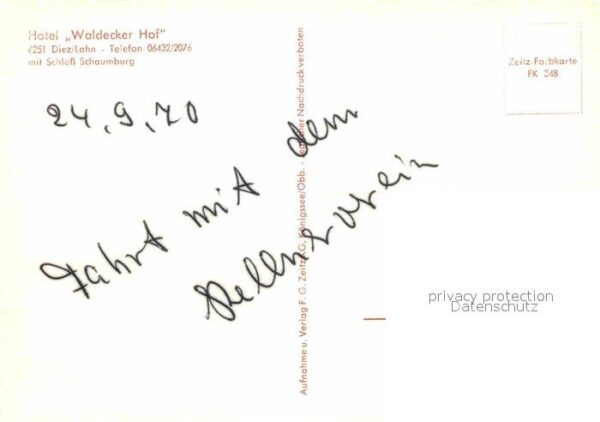 Hotel „Waldecker Hof“
6251 Diez/Lahn - Telefon 06432/2076
mit Schloß Schaumburg
Zeitz-Farbkarte
FK 248
24.9.70
Fahrt mit dem
Kellnerverein
Aufnahme u. Verlag F. G. Zeitz KG, Königssee/Obb. - Nachdruck verboten
privacy protection
Datenschutz